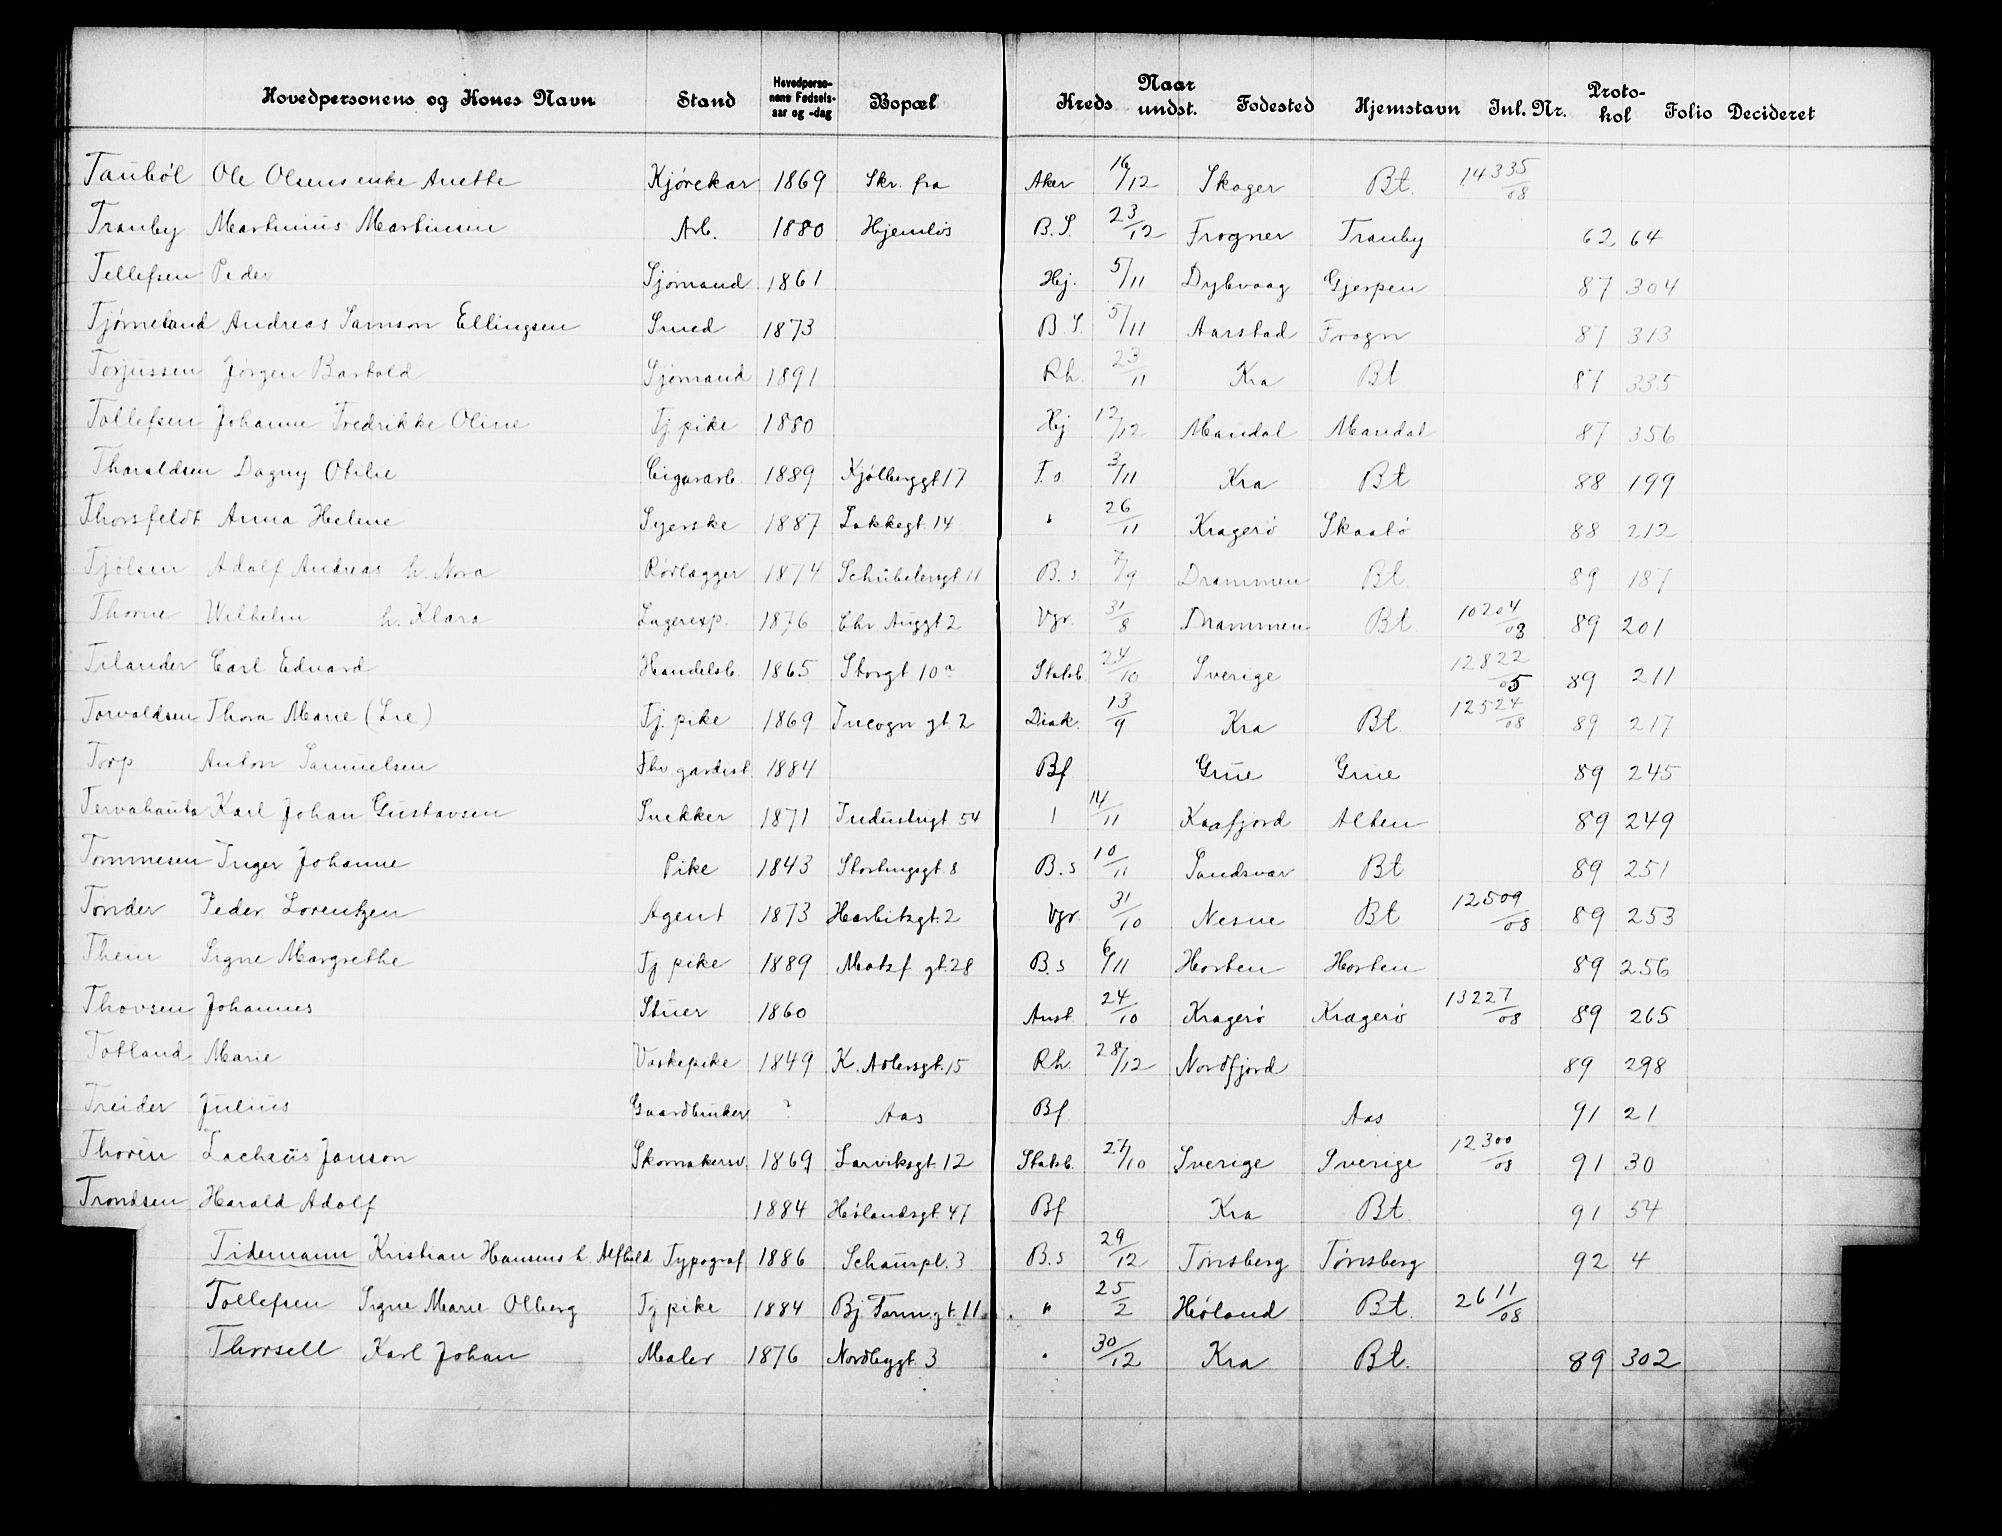 Hovedpersonens og Kones Navn Stand Hovedpersonens Fødselsaar og -dag Bopæl Kreds Naar undst. Fødested Hjemstavn Inl. Nr. Protokol Folio Decideret
Taubøl Ole Olsens enke Anette Kjørekar 1869 Skr. fra Aker 16/12 Skoger Bt. 14335/08
Tranby Martinius Martinsen Arb. 1880 Hjemløs B.S. 23/12 Frogner Tranby 62 64
Tellefsen Peder Sjømand 1861 Hj. 5/11 Dybvaag Gjerpen 87 304
Tjømeland Andreas Samson Ellingsen Smed 1873 B.S. 5/11 Aarstad Frogn 87 313
Torjussen Jørgen Bartold Sjømand 1891 Rh. 23/11 Kra Bt 87 335
Tollefsen Johanne Fredrikke Oline Tj pike 1880 Hj 12/12 Mandal Mandal 87 356
Tharaldsen Dagny Otilie Cigararb. 1889 Kjølberggt 17 F.s. 3/11 Kra Bt 88 199
Thorsfeldt Anna Helene Syerske 1887 Lakkegt. 14 " 26/11 Kragerø Skaatø 88 212
Tjølsen Adolf Andreas h. Nora Rørlægger 1874 Schübelersgt 11 B.s. 7/9 Drammen Bt. 89 187
Thorne Wilhelm h. Klara Lagerexp. 1876 Chr. Auggt 2 Vgr. 31/8 Drammen Bt. 10204/08 89 201
Tilander Carl Edvard Handelsb. 1865 Storgt. 10a Statsb. 24/10 Sverige 12822/05 89 211
Torvaldsen Thora Marie (Lie) Tj. pike 1869 Incogn gt. 2 Diak. 13/9 Kra Bt. 12524/08 89 217
Torp Anton Samuelsen Fhv gardist 1884 Bf Grue Grue 89 245
Tervahauta Karl Johan Gustavsen Snekker 1871 Industrigt 54 1 14/11 Kaafjord Alten 89 249
Tommesen Inger Johanne Pike 1843 Stortingsgt. 8 B.s 10/11 Sandsvær Bt 89 251
Tønder Peder Lorentzen Agent 1873 Harbitzgt. 2 Vgr. 31/10 Nesne Bt 12509/08 89 253
Them Signe Margrethe Tj pike 1889 Motzf gt. 28 B.s 6/11 Horten Horten 89 256
Thovsen Johannes Stuer 1860 Anst. 24/10 Kragerø Kragerø 13227/08 89 265
Totland Marie Vaskepike 1849 K. Adlersgt. 15 Rh. 28/12 Nordfjord 89 298
Treider Julius Gaardbruker ? Aas Bf Aas 91 21
Thorin Zachæus Janson Skomakersv. 1869 Larviksgt. 12 Statsb. 27/10 Sverige Sverige 12300/08 91 30
Trondsen Harald Adolf 1884 Hølandsgt. 47 Bf Kra Bt. 91 54
Tidemann Kristian Hansens h. Alfhild Typograf 1886 Schauspl. 3 B.s 29/12 Tønsberg Tønsberg 92 4
Tollefsen Signe Marie Olberg Tj pike 1884 Bj. Farm.gt. 11 " 25/2 Høland Bt. 2611/08
Thorsell Karl Johan Maler 1876 Nordbygt. 3 " 30/12 Kra Bt. 89 302